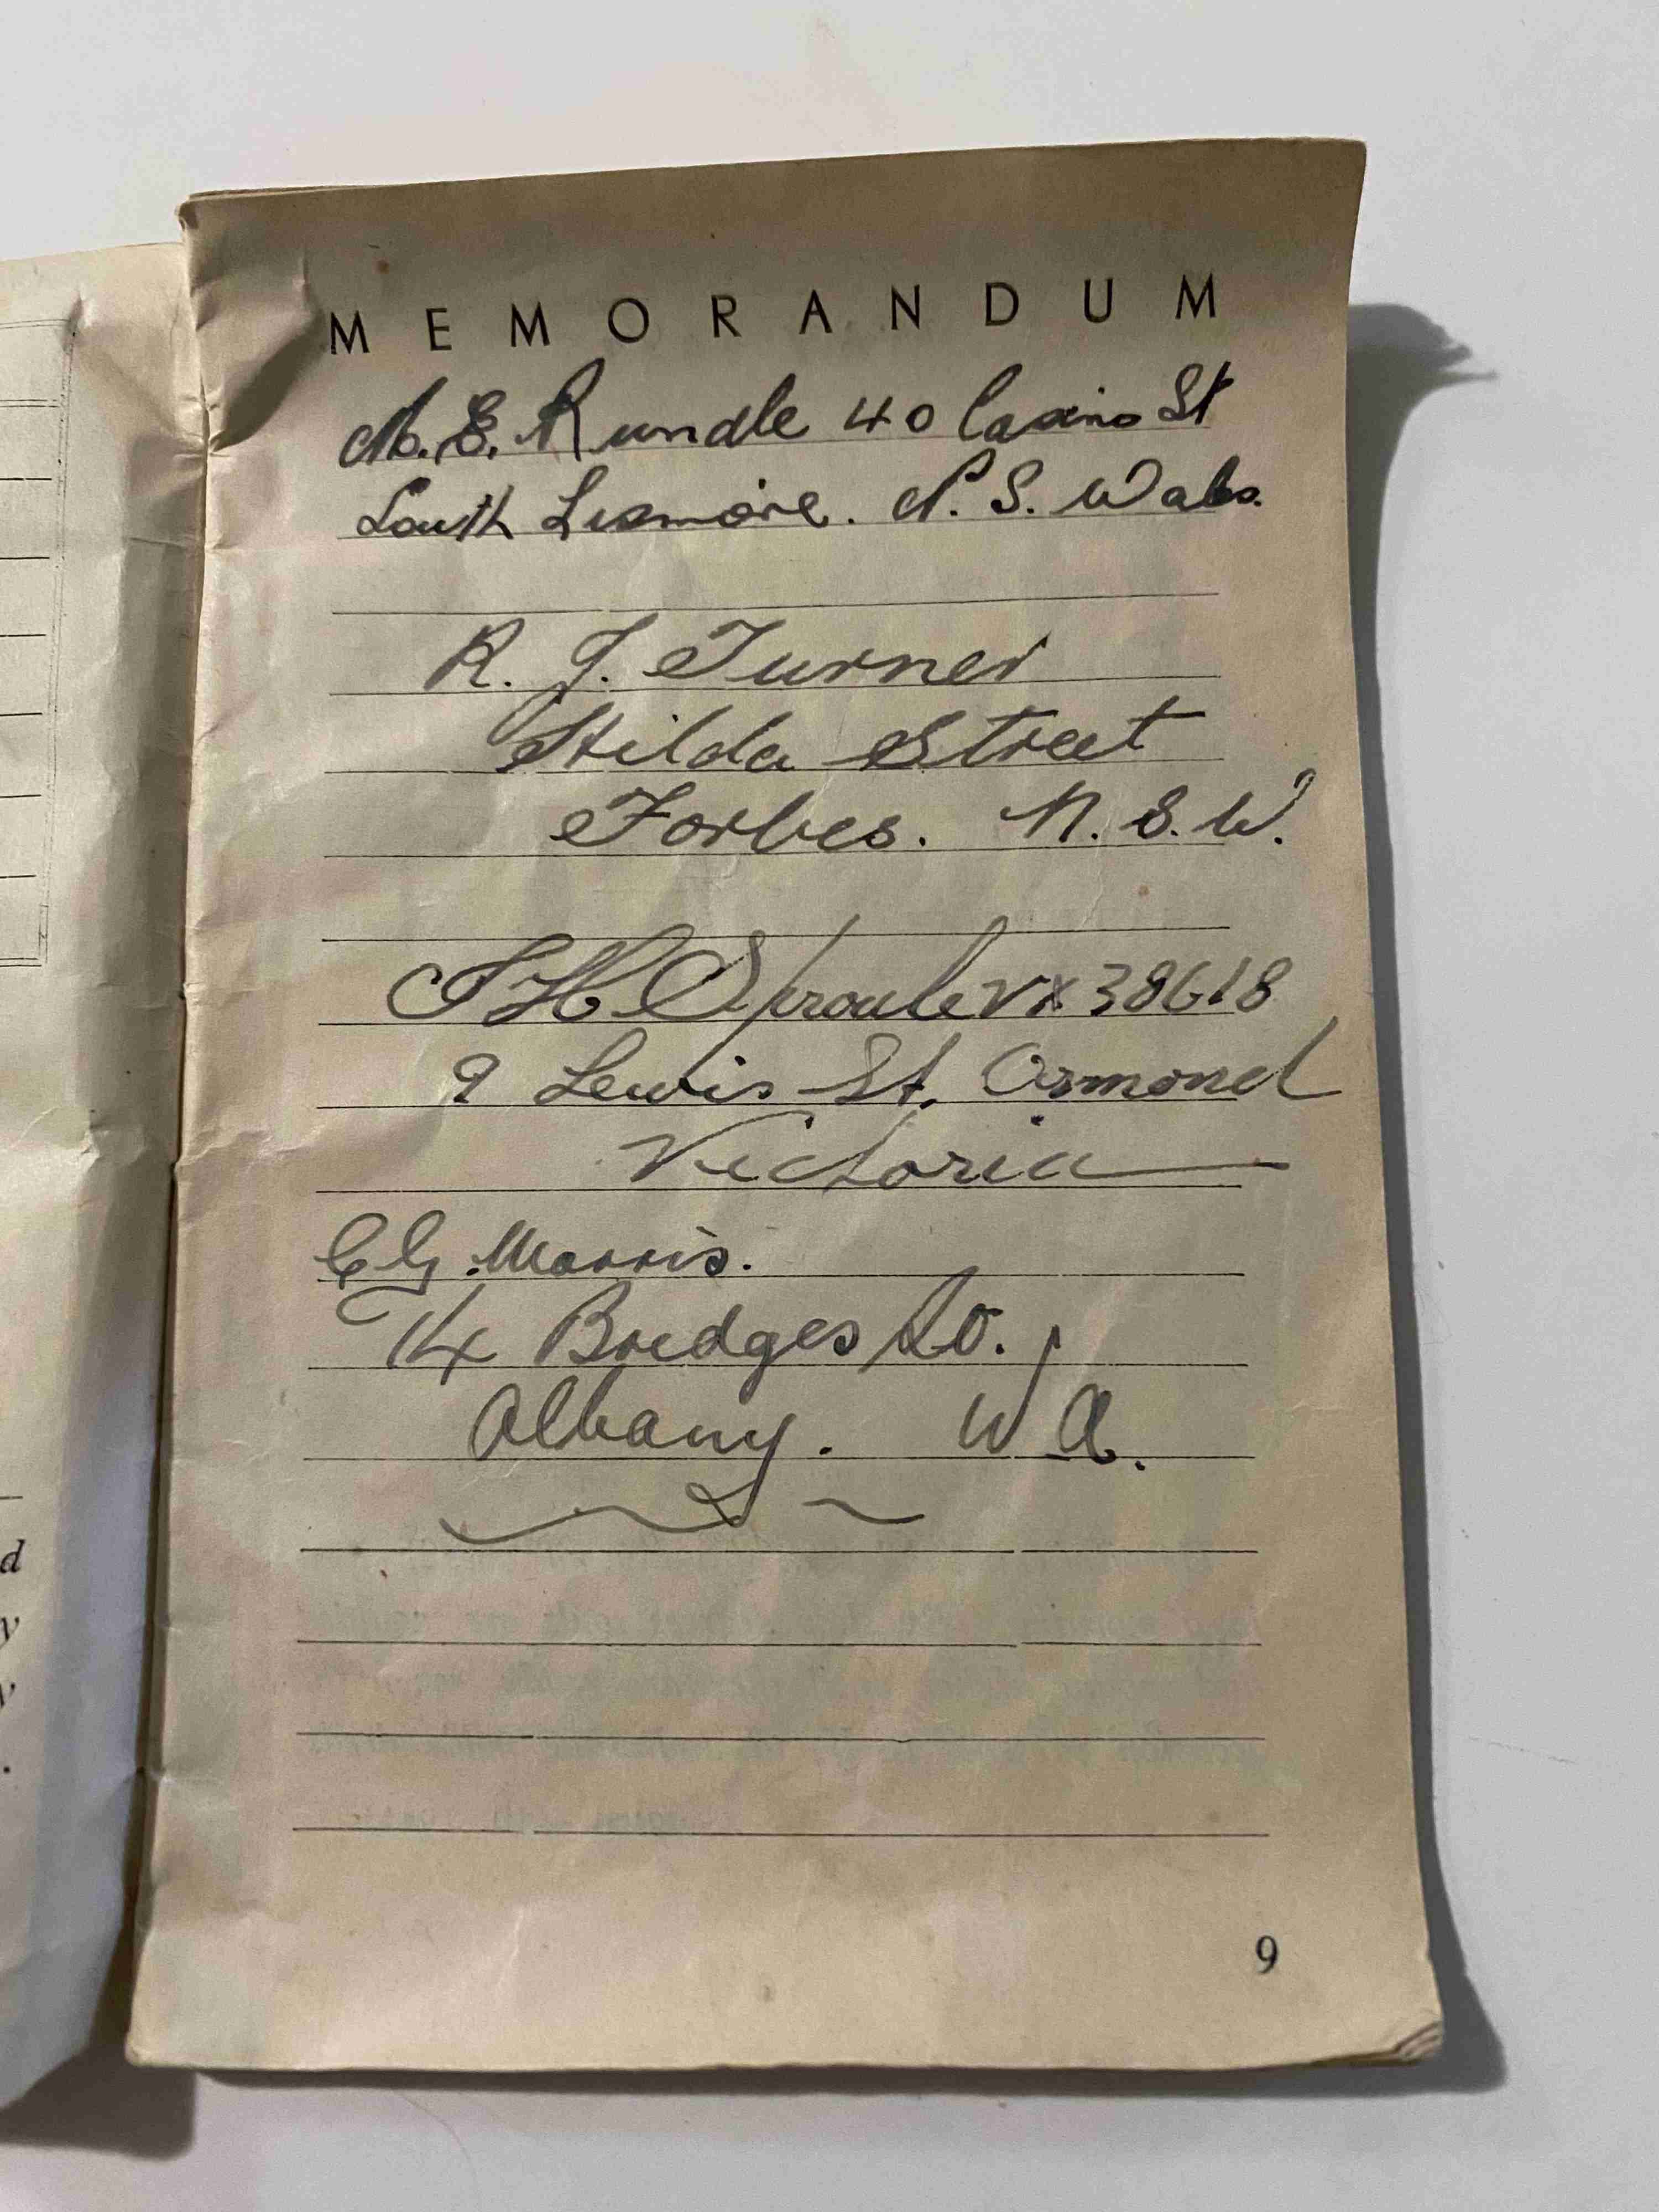 MEMORANDUM
M. E. Rundle 40 Casino St
South Lismore. N. S. Wales.
R. J. Turner
Hilda Street
Forbes. N. S. W.
J H Sproule VX38618
9 Lewis St. Ormond
Victoria
C G Morris.
74 Bridges St.
Albany. W A.
9
d
y
y
.